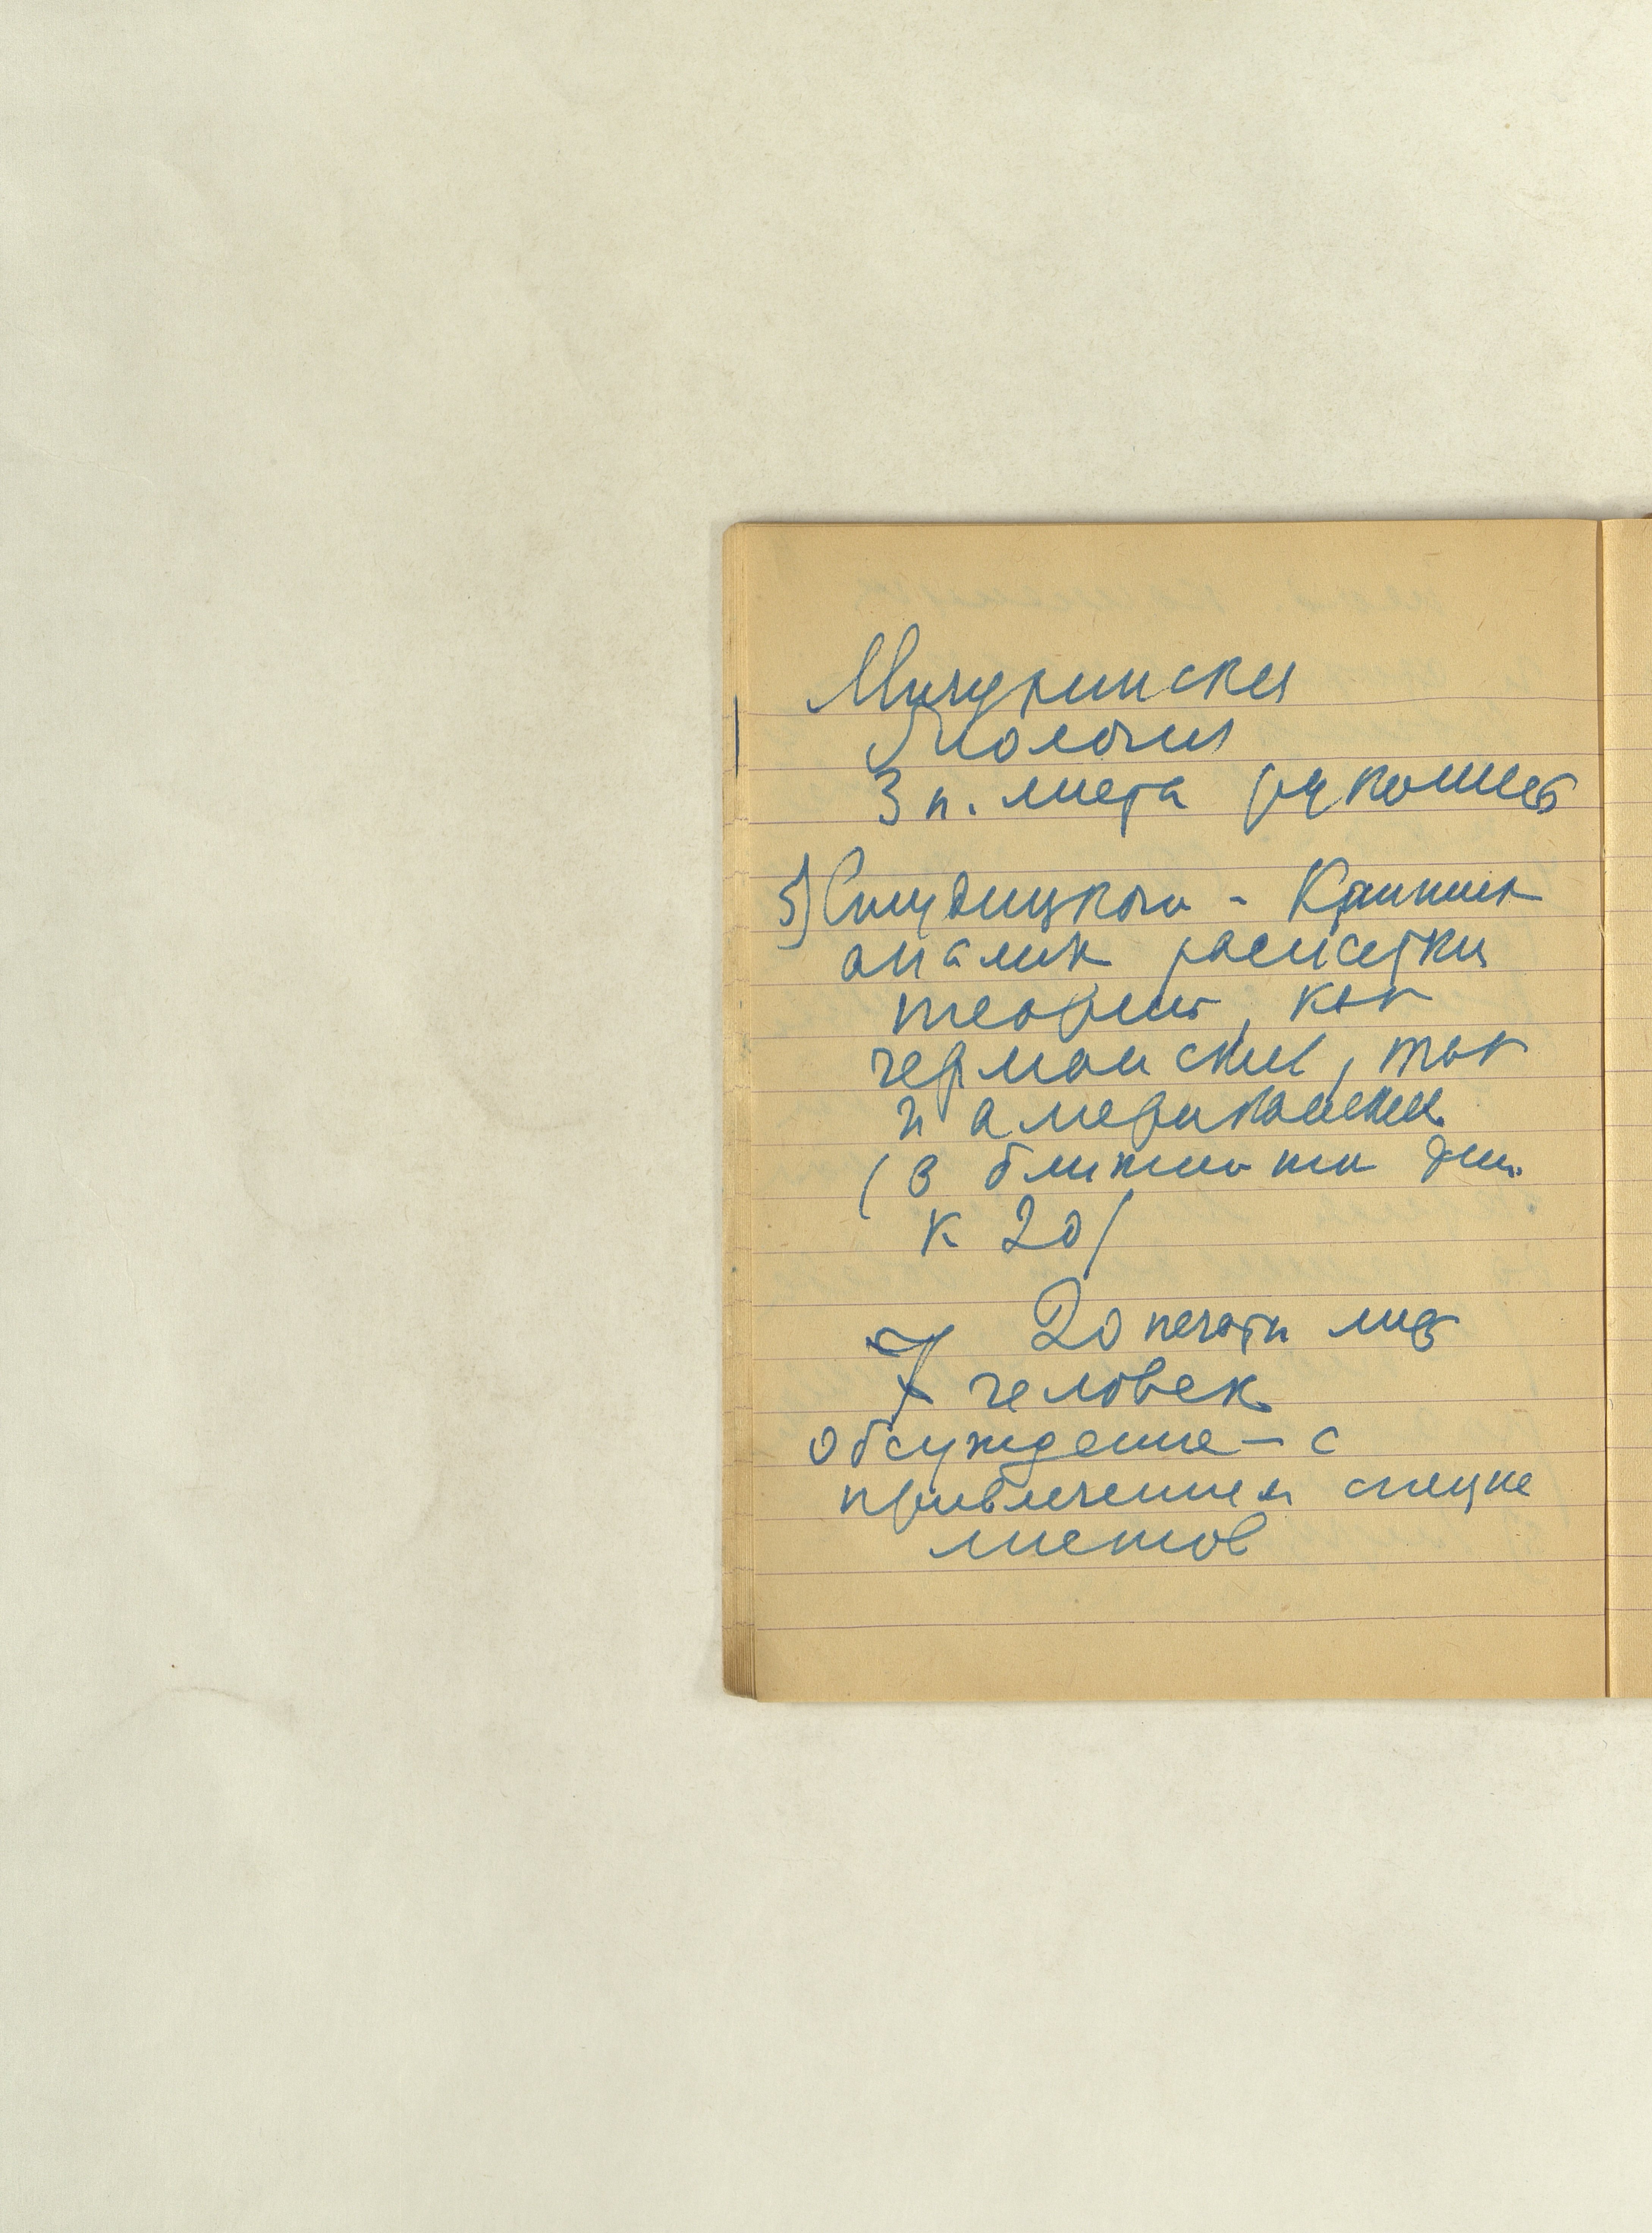 Мичуринская
биология
3 п. листа рукопись
5) Студицкого - Критич
анализ расистских
теорий, как
германских, так
и американских
(в ближайшие дни
к 20)
20 печатн лист
7 человек
обсуждение - с
привлечением специа
листов